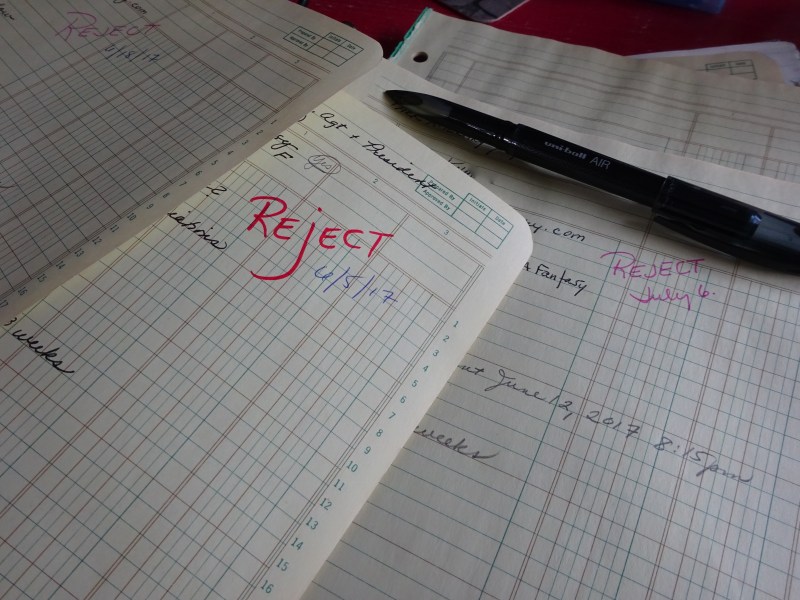 .com
REJECT
4/18/17
Prepared By
Initials
Date
Approved By
Agt + President
F
yes
Prepared By
Initials
Date
Approved By
1
2
3
REJECT
4/5/17
weeks
1
2
3
4
5
6
7
8
9
10
11
12
13
14
15
16
uni-ball AIR
.com
Fantasy
REJECT
July 6.
June 12, 2017 8:15pm
weeks